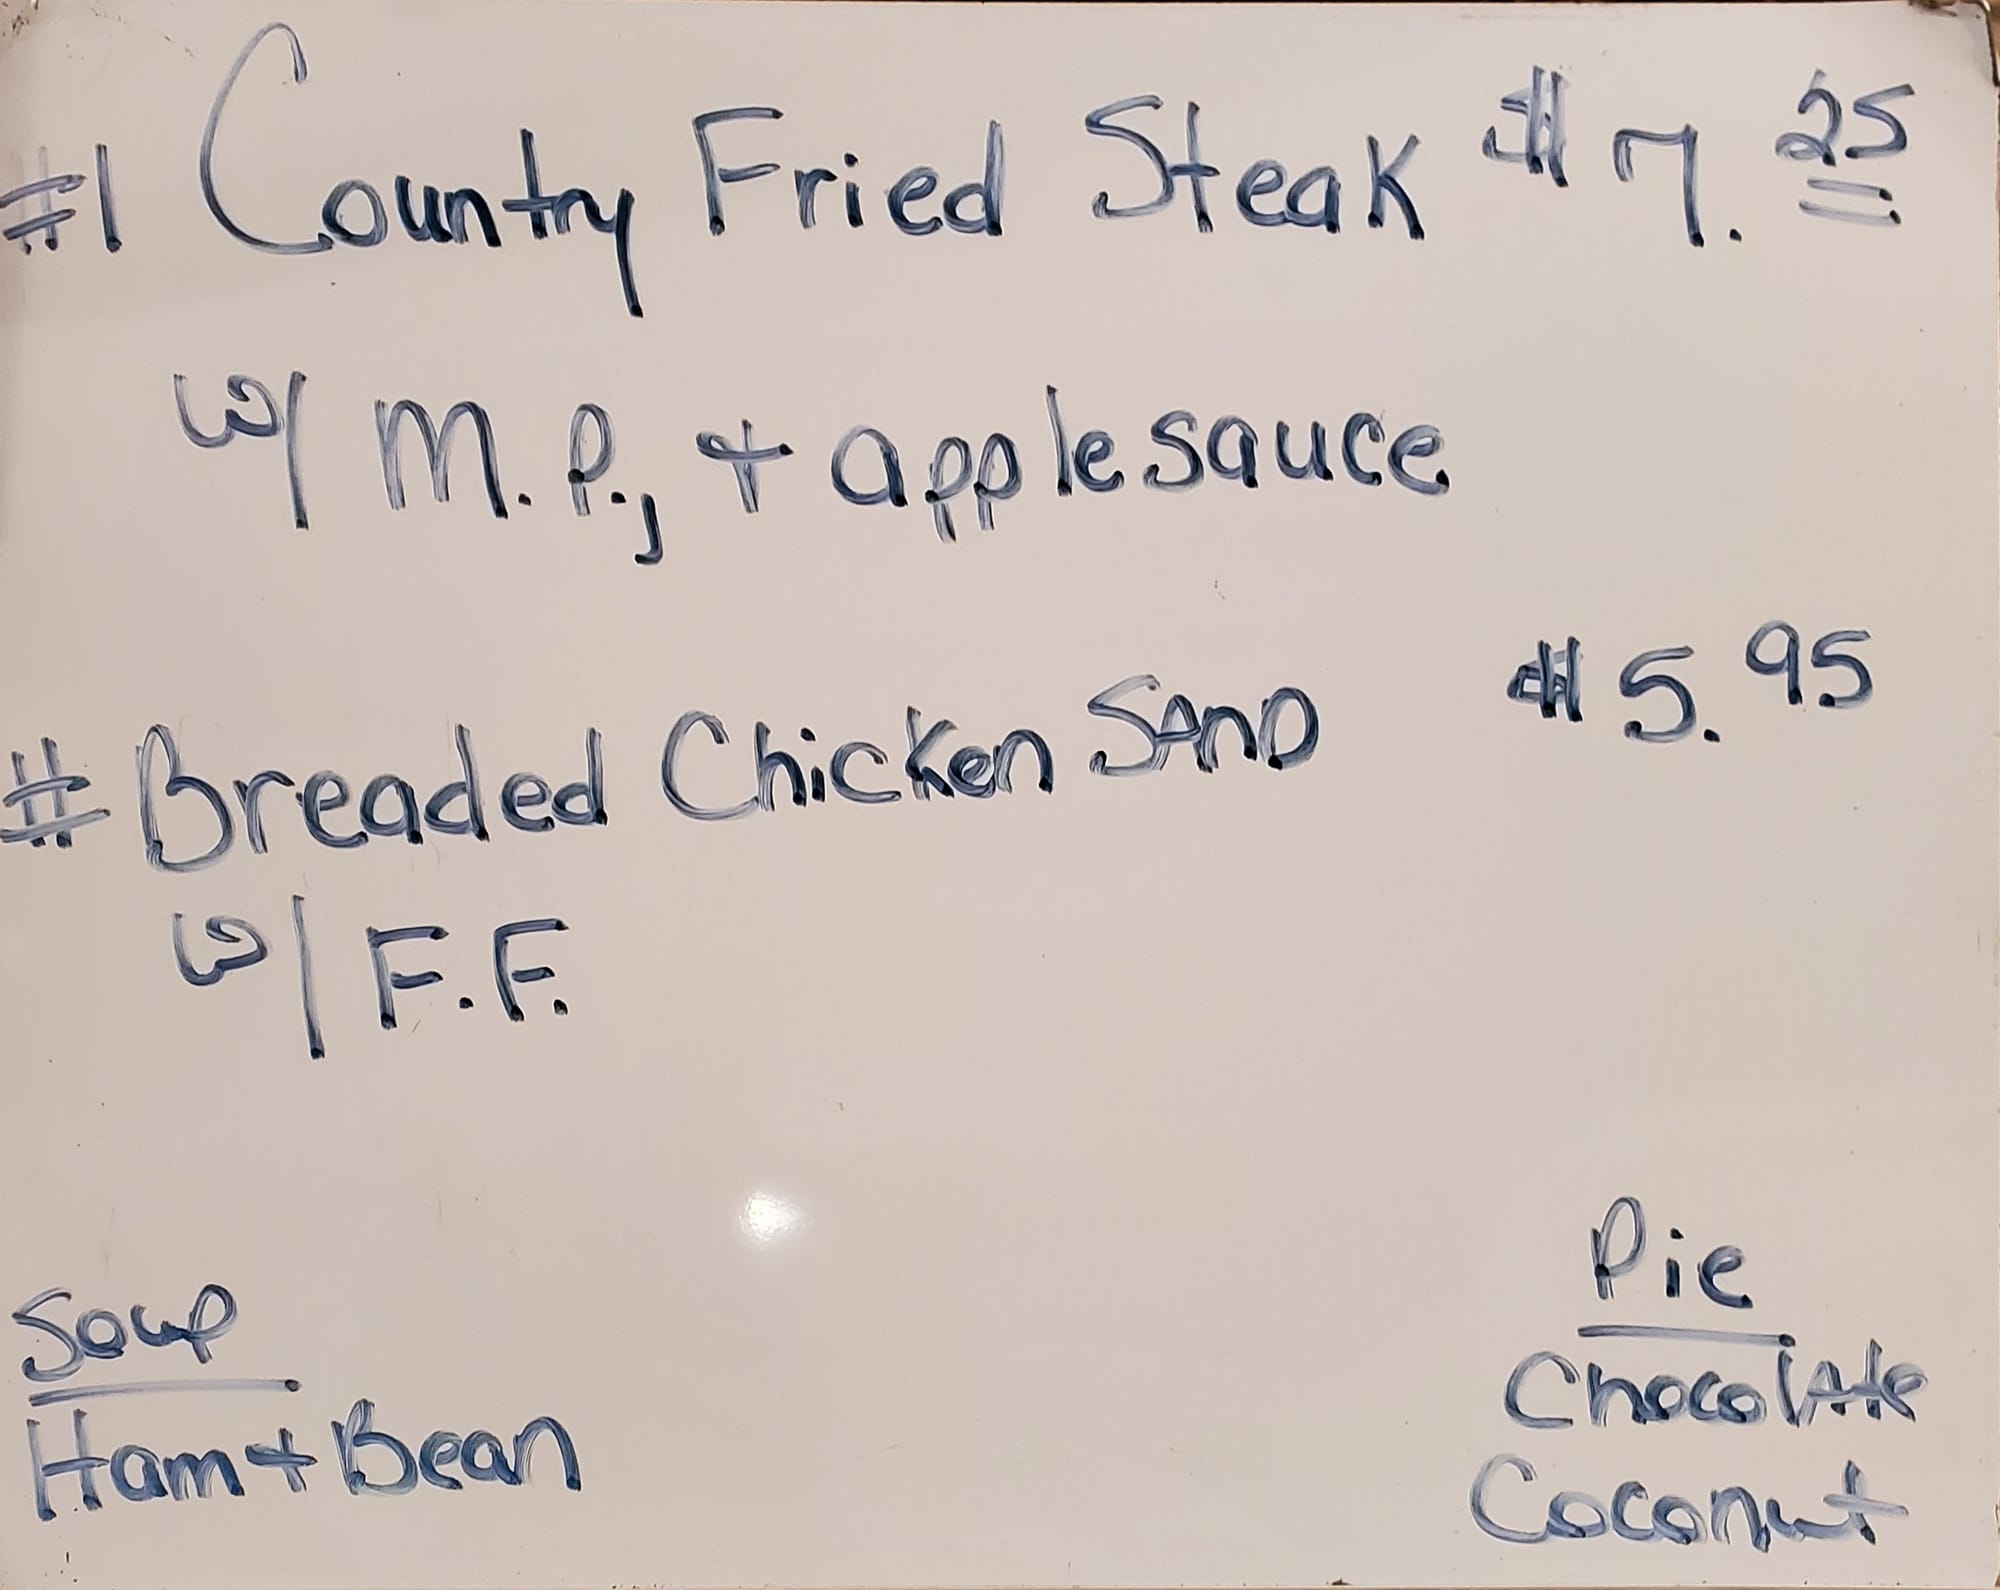 #1 Country Fried Steak $7.25
w/ M.P., + applesauce
# Breaded Chicken Sand $5.95
w/ F.F.
Soup
Ham + Bean
Pie
Chocolate
Coconut